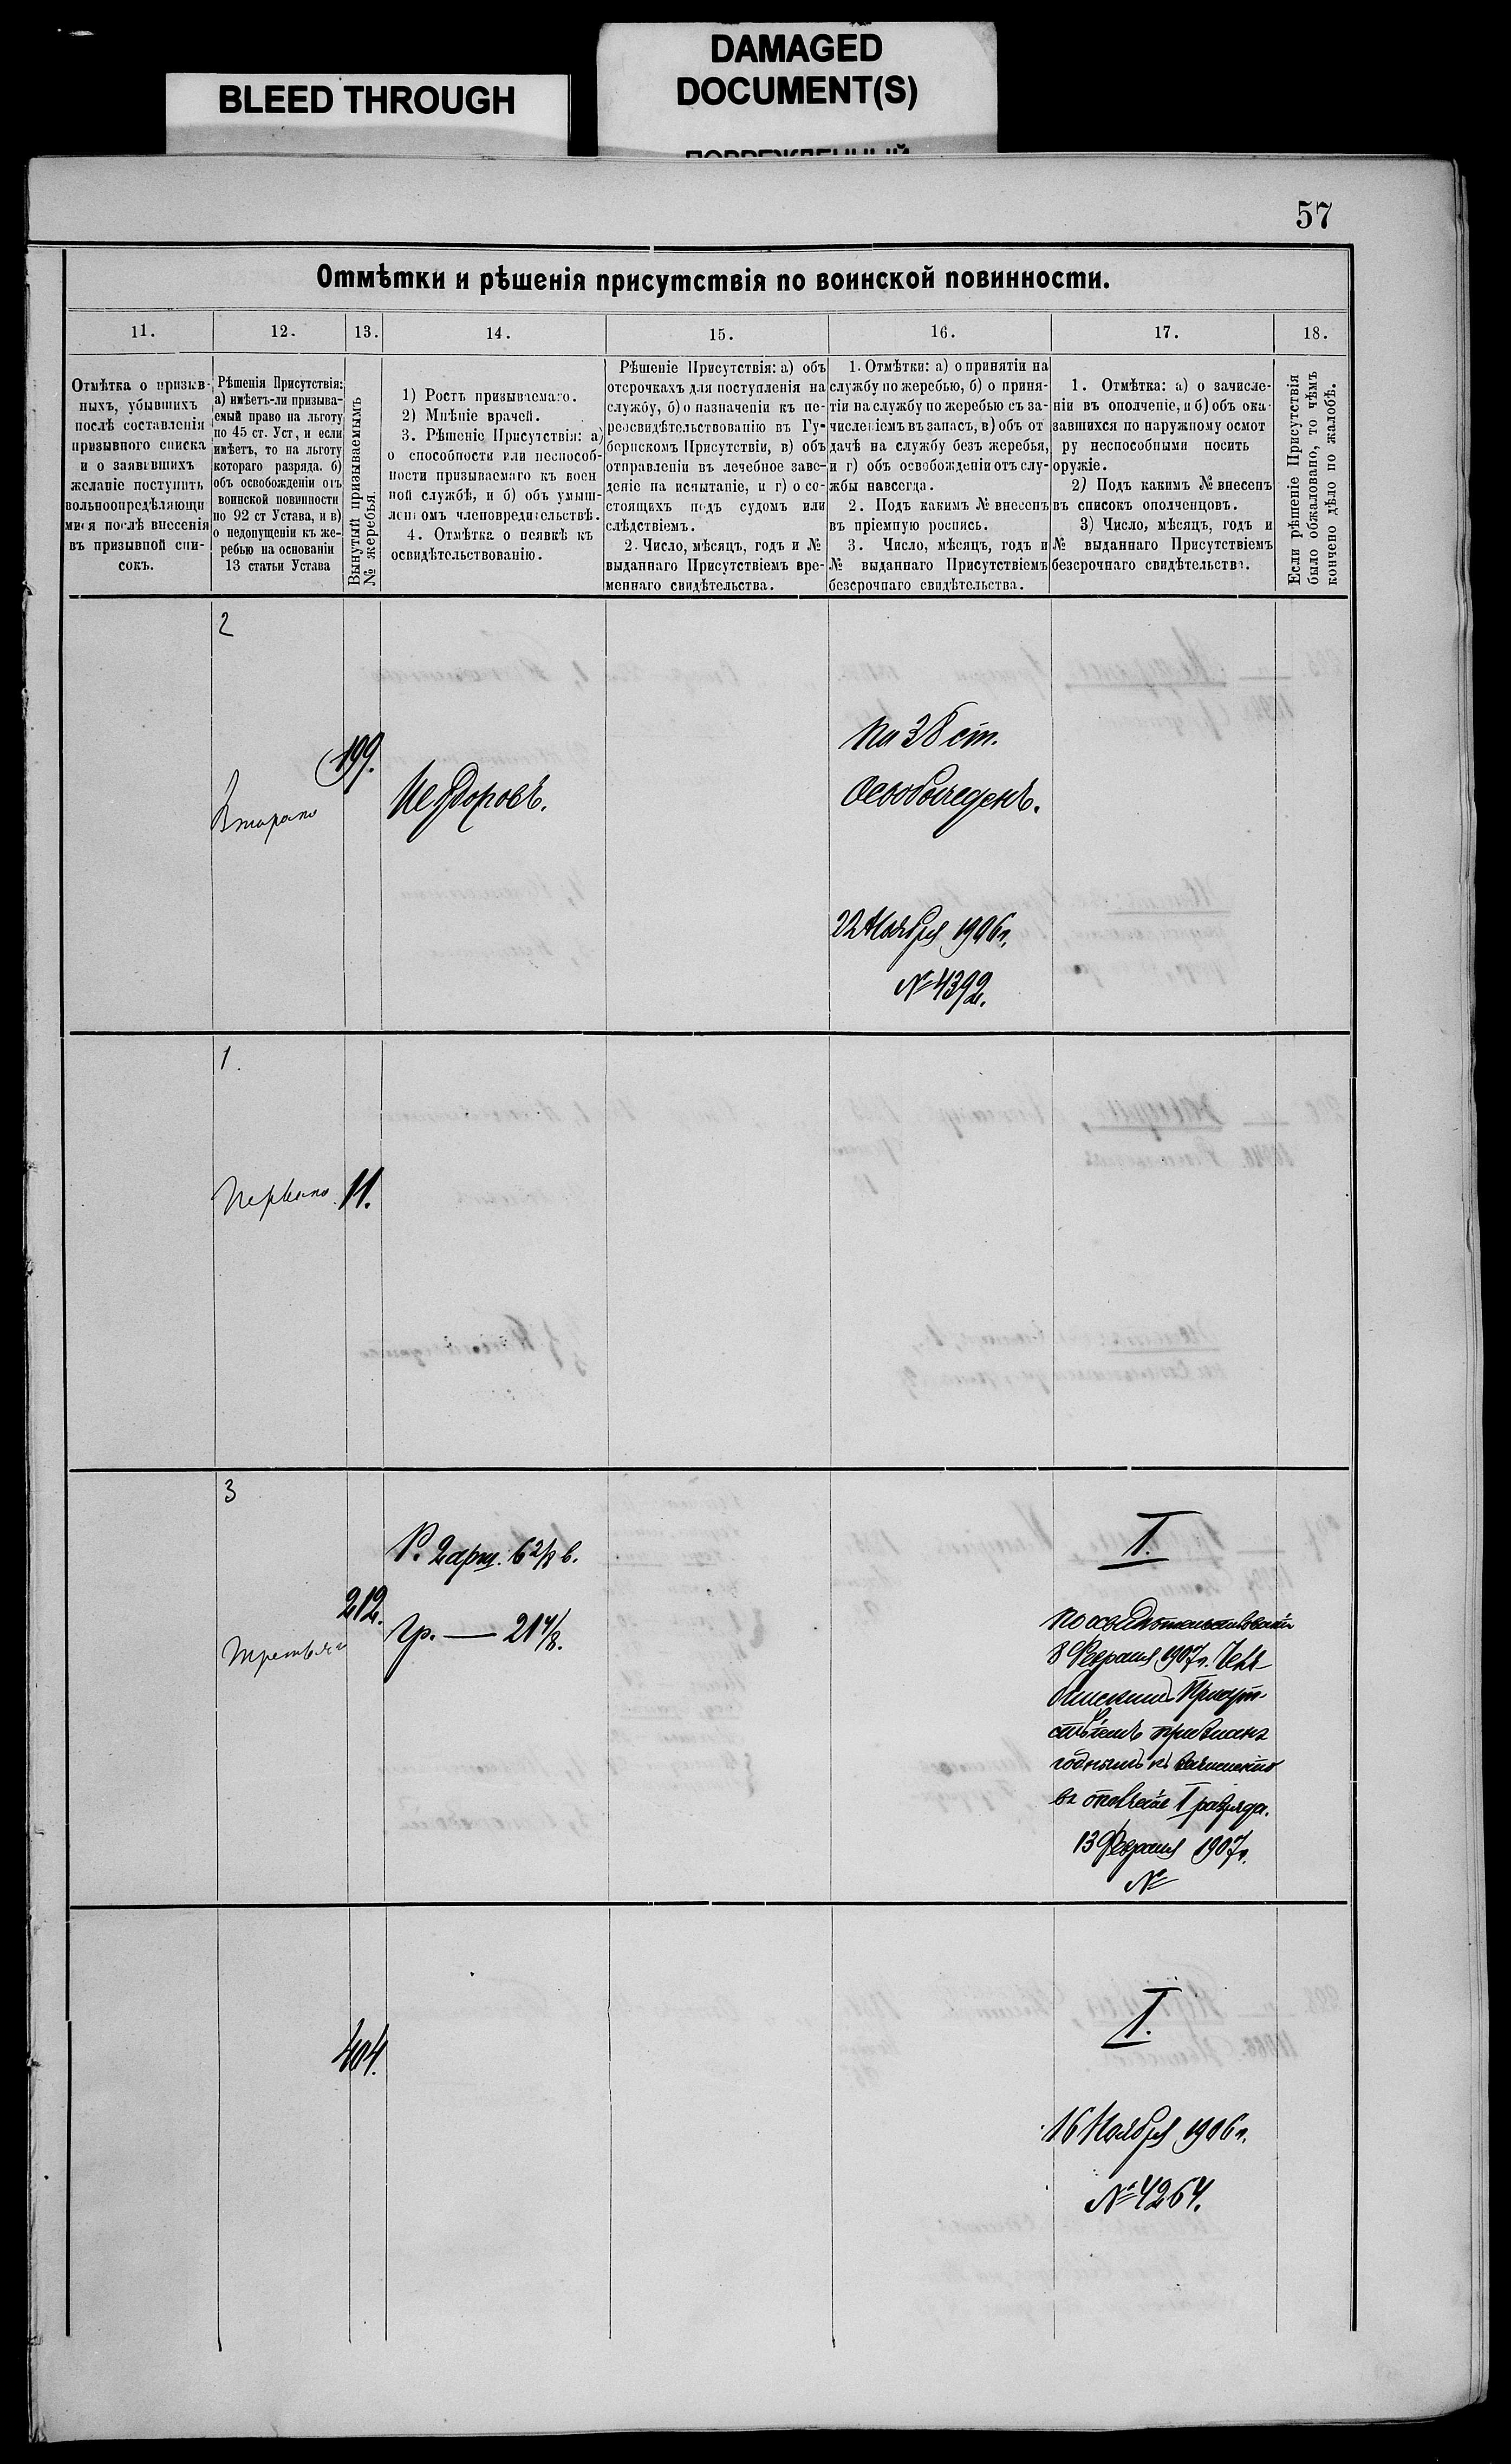 BLEED THROUGH
DAMAGED
DOCUMENT(S)
57
Отмѣтки и рѣшенія присутствія по воинской повинности.
11. 12. 13. 14. 15. 16. 17. 18.
Отмѣтка о призыв-
ныхъ, убывшихъ
послѣ составленія
призывного списка
и о заявившихъ
желаніе поступить
вольноопредѣляющи
мися послѣ внесенія
въ призывной спи-
сокъ.
Рѣшенія Присутствія:
а) имѣетъ-ли призыва-
емый право на льготу
по 45 ст. Уст, и если
имѣетъ, то на льготу
котораго разряда. б)
объ освобожденіи отъ
воинской повинности
по 92 ст Устава, и в)
о недопущеніи къ же-
ребью на основаніи
13 статьи Устава
Вынутый призываемымъ
№ жеребья.
1) Ростъ призываемаго.
2) Мнѣніе врачей.
3. Рѣшеніе Присутствія: а)
о способности или неспособ-
ности призываемаго къ воен
ной службѣ, и б) объ умыш-
леномъ членовредительствѣ.
4. Отмѣтка о неявкѣ къ
освидѣтельствованію.
Рѣшеніе Присутствія: а) объ
отсрочкахъ для поступленія на
службу, б) о назначеніи къ пе-
реосвидѣтельствованію въ Гу-
бернскомъ Присутствіи, в) объ
отправленіи въ лечебное заве-
деніе на испытаніе, и г) о со-
стоящихъ подъ судомъ или
слѣдствіемъ.
2. Число, мѣсяцъ, годъ и №
выданнаго Присутствіемъ вре-
меннаго свидѣтельства.
1. Отмѣтки: а) о принятіи на
службу по жеребью, б) о приня-
тіи на службу по жеребью съ за-
численіемъ въ запасъ, в) объ от
дачѣ на службу безъ жеребья,
и г) объ освобожденіи отъ слу-
жбы навсегда.
2. Подъ какимъ № внесенъ
въ пріемную роспись.
3. Число, мѣсяцъ, годъ и
№ выданнаго Присутствіемъ
безсрочнаго свидѣтельства.
1. Отмѣтка: а) о зачисле-
ніи въ ополченіе, и б) объ ока-
завшихся по наружному осмот
ру неспособными носить
оружіе.
2) Подъ какимъ № внесенъ
въ списокъ ополченцовъ.
3) Число, мѣсяцъ, годъ и
№ выданнаго Присутствіемъ
безсрочнаго свидѣтельства.
Если рѣшеніе Присутствія
было обжаловано, то чѣмъ
кончено дѣло по жалобѣ.
2
Втораго
199.
Нездоровъ.
по 38 ст.
Освобожденъ.
22 Ноября 1906 г.
№ 4392.
1.
Перваго
11.
3
третьяго
212.
Р. 2 арш. 6 2/8 в.
Гр. — 21 4/8.
I.
по освидѣтельствованіи
8 Февраля 1907 г. Челя-
бинскимъ Присут-
ствіемъ признанъ
годнымъ къ зачисленію
въ ополченіе I разряда.
13 Февраля 1907 г.
№
404.
I.
16 Ноября 1906 г.
№ 4264.